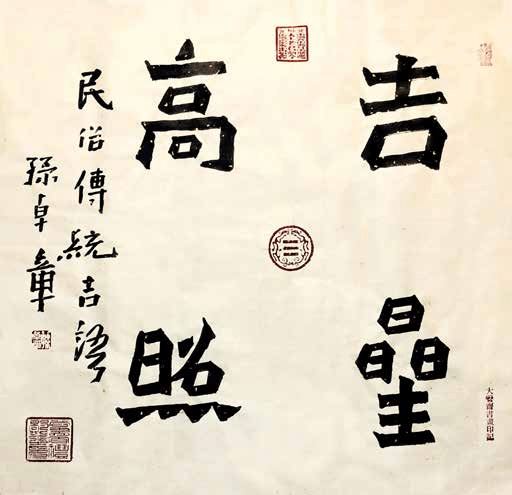 吉曐
高照
民俗傳統吉語
孫卓章
大齋書畫印記